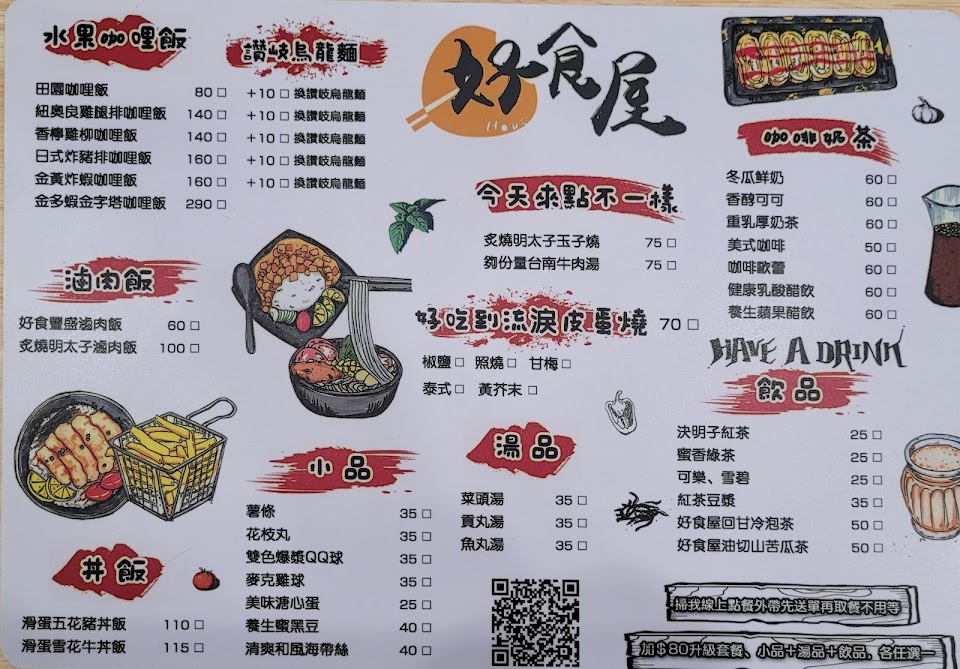 水果咖哩飯
田園咖哩飯 80 □
紐奧良雞腿排咖哩飯 140 □
香檸雞柳咖哩飯 140 □
日式炸豬排咖哩飯 160 □
金黃炸蝦咖哩飯 160 □
金多蝦金字塔咖哩飯 290 □
讚岐烏龍麵
+10 □ 換讚岐烏龍麵
+10 □ 換讚岐烏龍麵
+10 □ 換讚岐烏龍麵
+10 □ 換讚岐烏龍麵
+10 □ 換讚岐烏龍麵
滷肉飯
好食豐盛滷肉飯 60 □
炙燒明太子滷肉飯 100 □
丼飯
滑蛋五花豬丼飯 110 □
滑蛋雪花牛丼飯 115 □
小品
薯條 35 □
花枝丸 35 □
雙色爆漿QQ球 35 □
麥克雞球 35 □
美味溏心蛋 25 □
養生蜜黑豆 40 □
清爽和風海帶絲 40 □
好食屋
今天來點不一樣
炙燒明太子玉子燒 75 □
夠份量台南牛肉湯 75 □
好吃到流淚皮蛋燒 70 □
椒鹽 □ 照燒 □ 甘梅 □
泰式 □ 黃芥末 □
湯品
菜頭湯 35 □
貢丸湯 35 □
魚丸湯 35 □
咖啡奶茶
冬瓜鮮奶 60 □
香醇可可 60 □
重乳厚奶茶 60 □
美式咖啡 50 □
咖啡歐蕾 60 □
健康乳酸醋飲 60 □
養生蘋果醋飲 60 □
HAVE A DRINK
飲品
決明子紅茶 25 □
蜜香綠茶 25 □
可樂、雪碧 25 □
紅茶豆漿 35 □
好食屋回甘冷泡茶 50 □
好食屋油切山苦瓜茶 50 □
掃我線上點餐外帶先送單再取餐不用等
加$80升級套餐、小品+湯品+飲品，各任選一